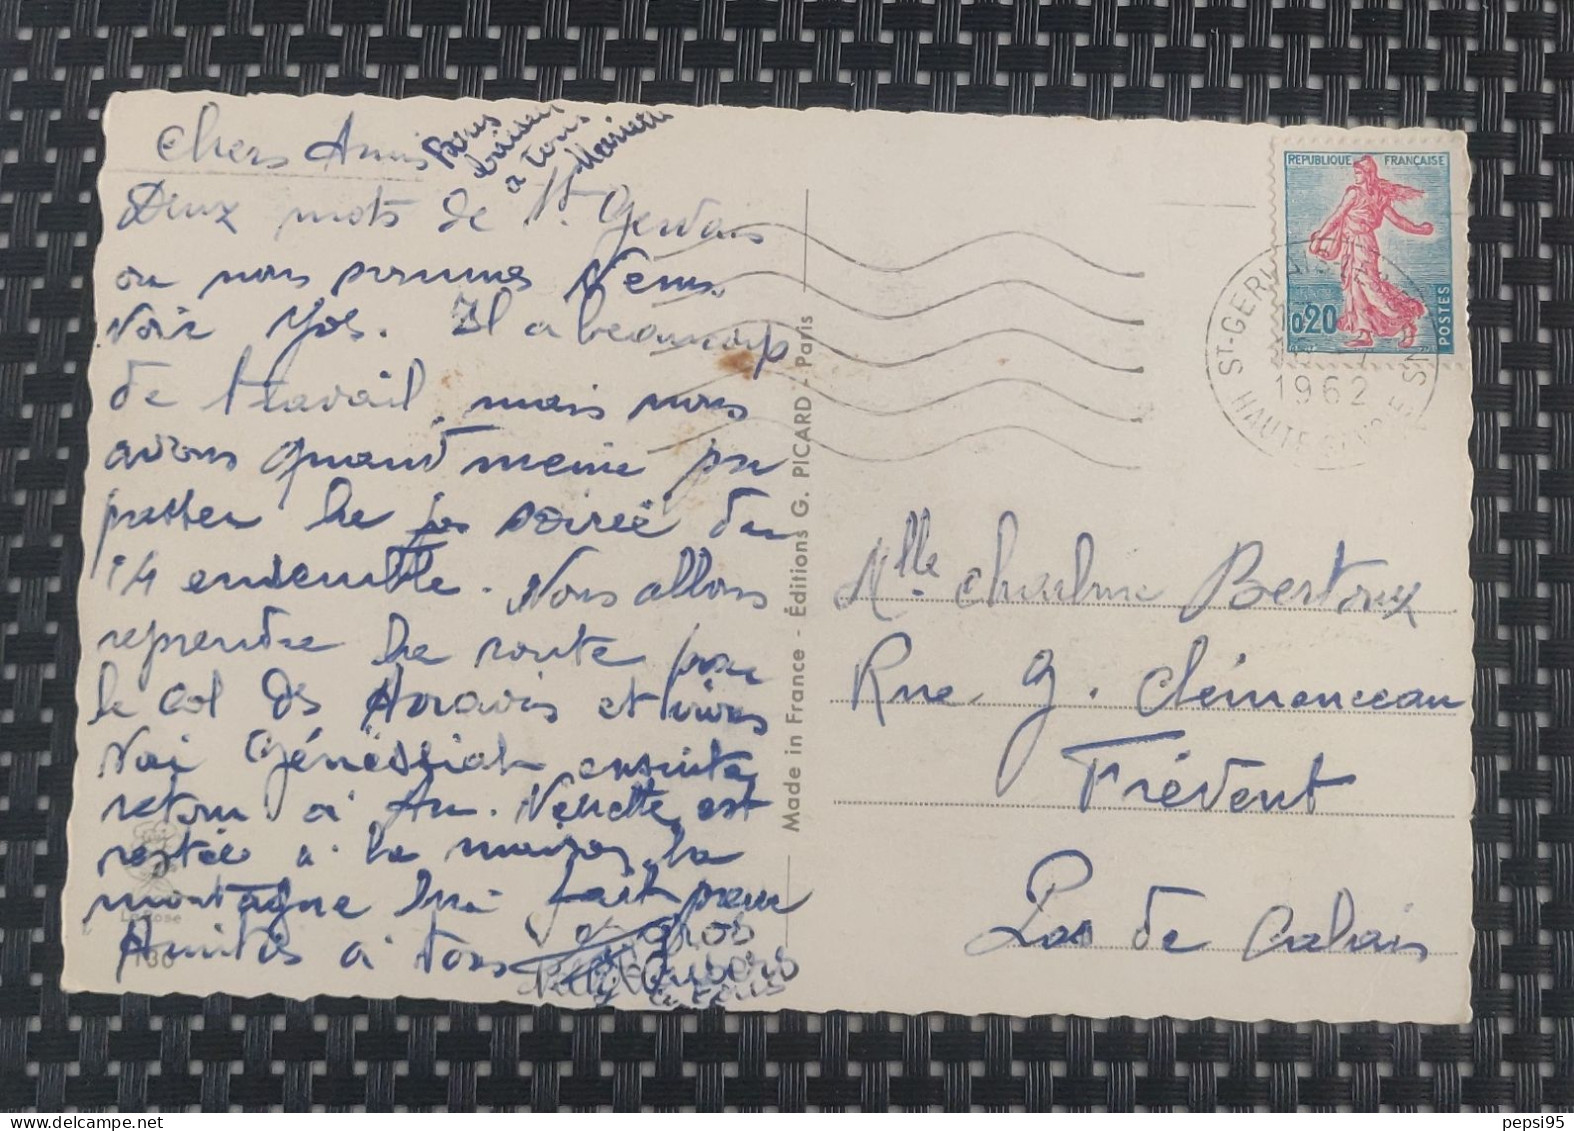 Chers Amis
Bons
baisers
a tous
Deux mots de St Gervais
ou nous sommes venus
voir Jos. Il a beaucoup
de travail, mais nous
avons quand meme pu
passer la soirée du
14 ensemble. Nous allons
reprendre la route pour
le col des Aravis et irons
voir Génissiat ensuite
retour à Am. est
restée à la maison, la
montagne lui fait peur
Amitiés à tous
gros
a tous
La Rose
136
Made in France - Éditions G. PICARD - Paris
REPUBLIQUE FRANÇAISE
0,20
POSTES
ST-GERVAIS
1962
HAUTE SAVOIE
Mlle Charline Bertoux
Rue G. Clémenceau
Frévent
Pas de Calais
pepsi95